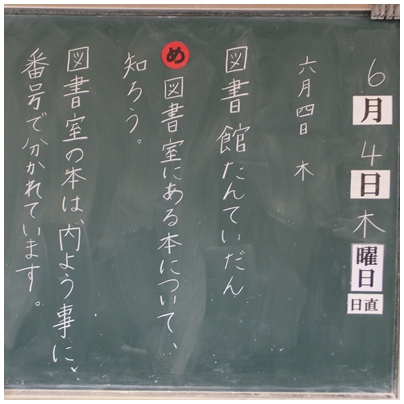 6月4日木曜日
日直
六月四日 木
図書館たんていだん
め 図書室にある本について、
知ろう。
図書室の本は、内よう事に、
番号で分かれています。